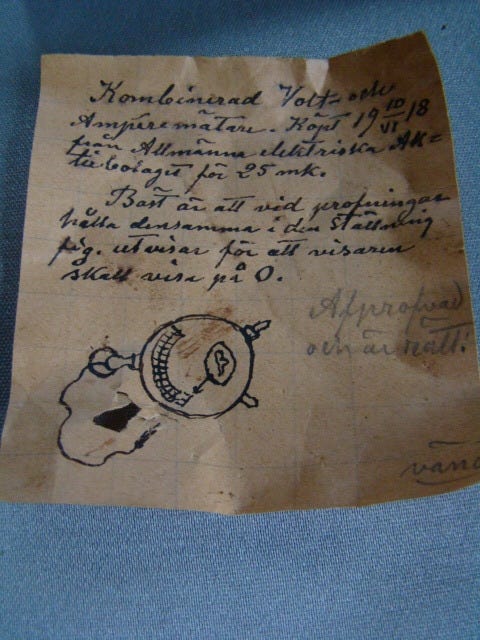 Kombinerad Volt- och
Amperemätare. Köpt 19 10/VI 18
från Allmänna elektriska Ak=
tiebolaget för 25 mk.
Bäst är att vid profningar
hålla densamma i den ställning
fig. utvisar för att visaren
skall visa på 0.
Afprofvad
och är rätt!
vänd